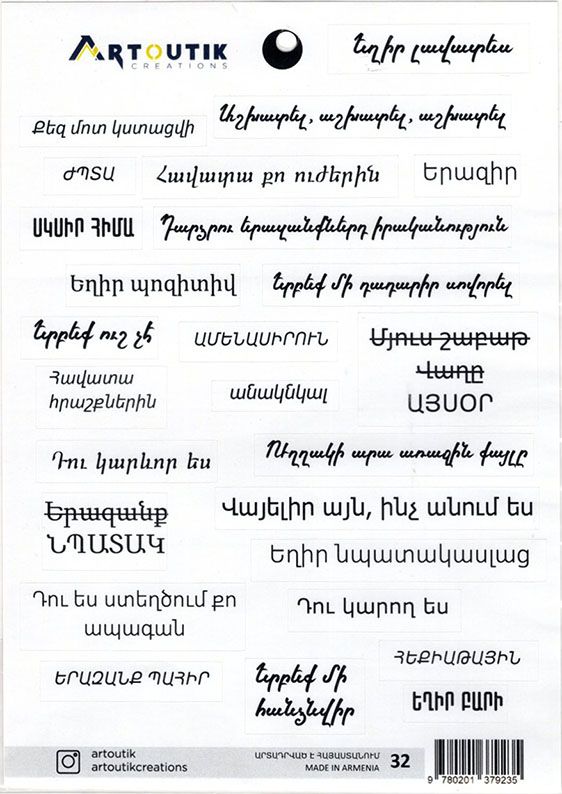 ARTOUTIK
CREATIONS
Եղիր լավատես
Քեզ մոտ կստացվի
Աշխատել, աշխատել, աշխատել
ԺՊՏԱ
Հավատա քո ուժերին
Երազիր
ՍԿՍԻՐ ՀԻՄԱ
Դարձրու երազանքներդ իրականություն
Եղիր պոզիտիվ
Երբեք մի դադարիր սովորել
Երբեք ուշ չէ
ԱՄԵՆԱՍԻՐՈՒՆ
Մյուս շաբաթ
Վաղը
ԱՅՍՕՐ
Հավատա
հրաշքներին
անակնկալ
Դու կարևոր ես
Ուղղակի արա առաջին քայլը
Երազանք
ՆՊԱՏԱԿ
Վայելիր այն, ինչ անում ես
Եղիր նպատակասլաց
Դու ես ստեղծում քո
ապագան
Դու կարող ես
ՀԵՔԻԱԹԱՅԻՆ
ԵՐԱԶԱՆՔ ՊԱՀԻՐ
Երբեք մի
հանձնվիր
ԵՂԻՐ ԲԱՐԻ
artoutik
artoutikcreations
ԱՐՏԱԴՐՎԱԾ Է ՀԱՅԱՍՏԱՆՈՒՄ
MADE IN ARMENIA
32
9 780201 379235